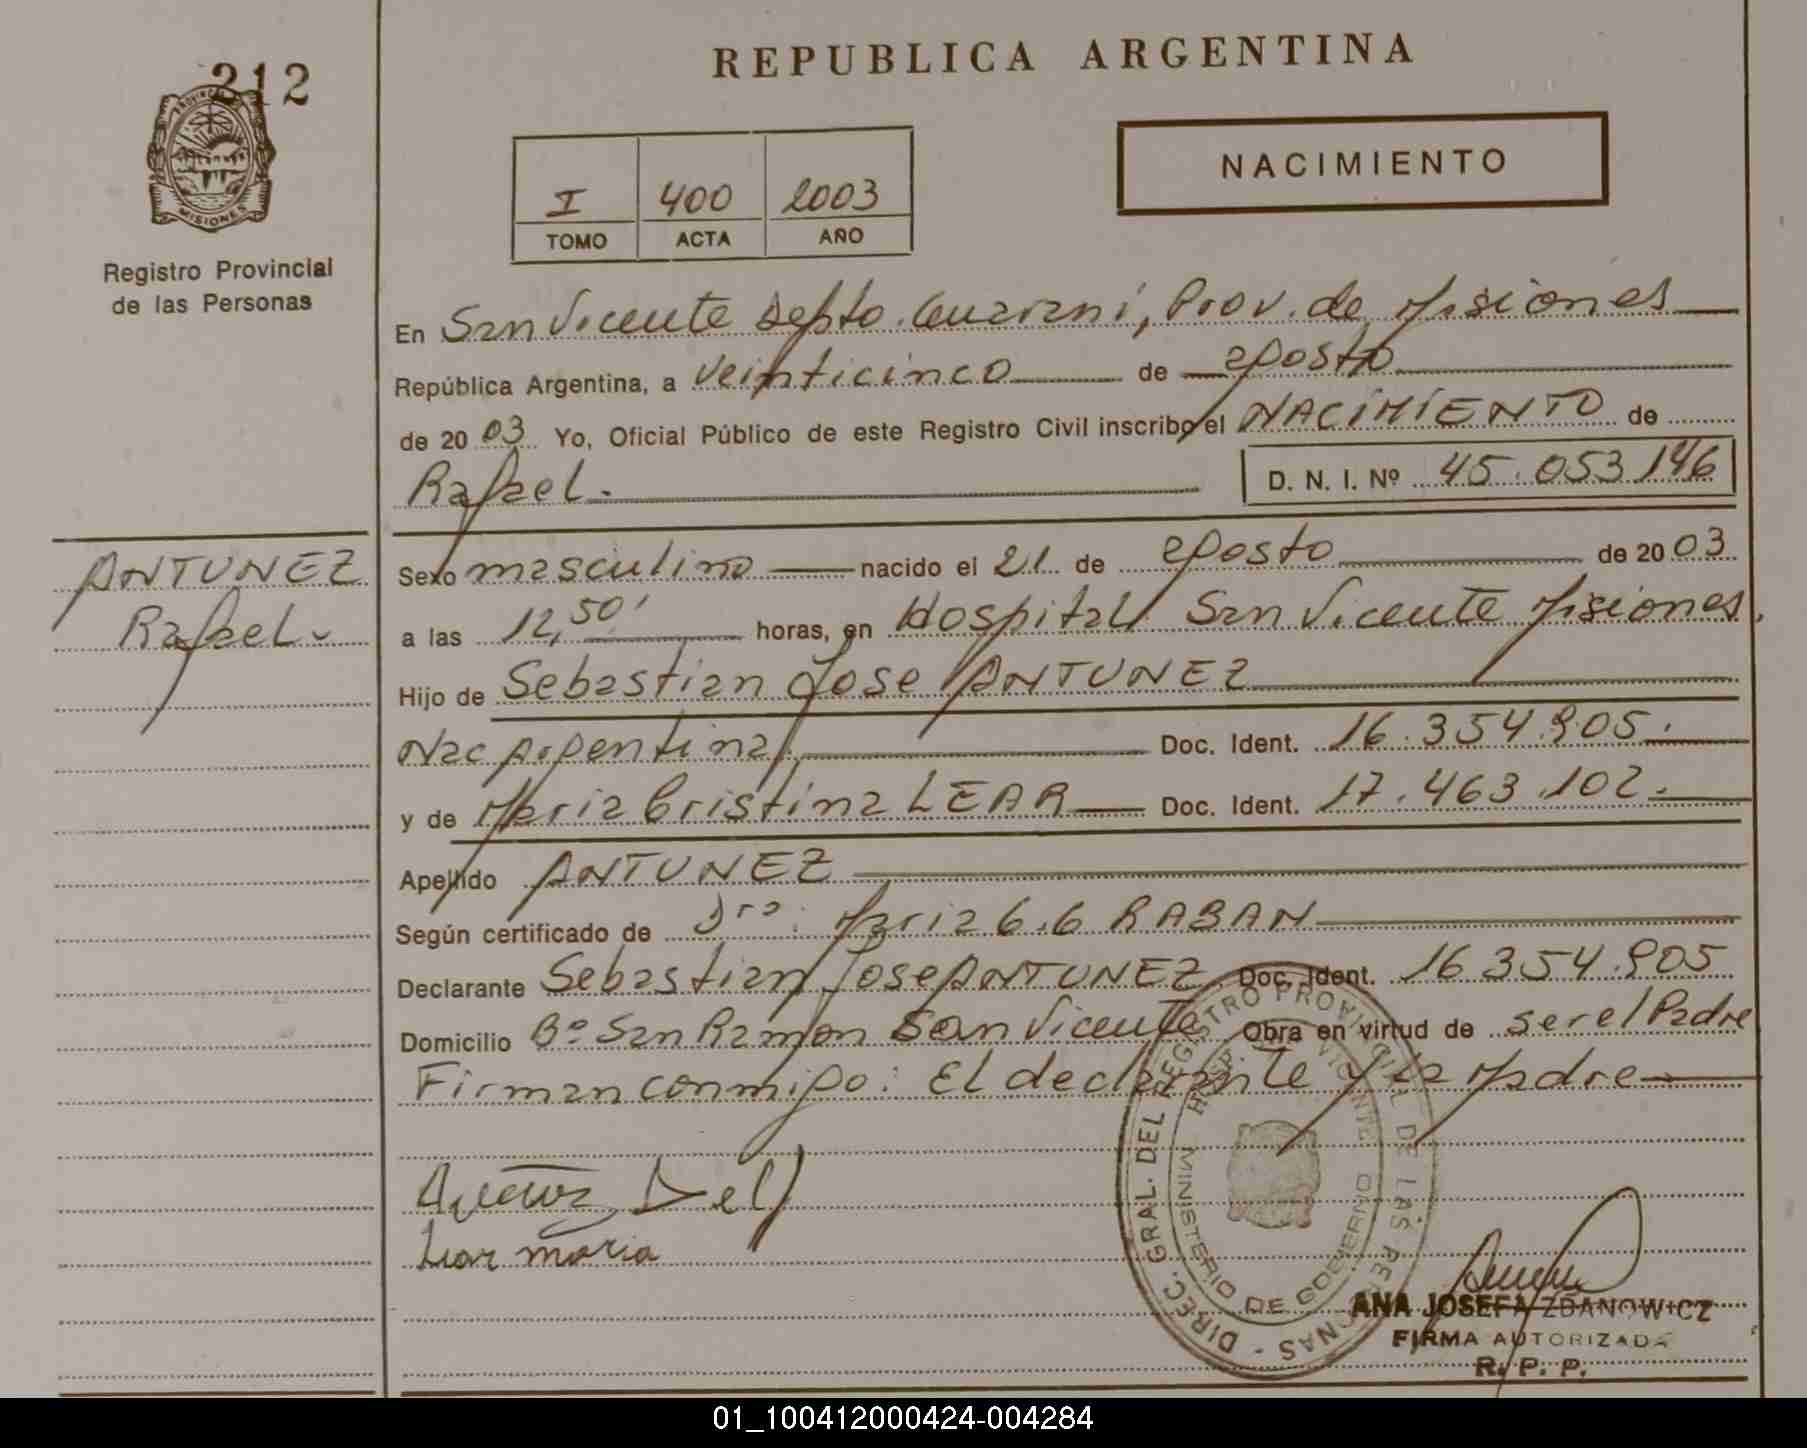 212
PROVINCIA
MISIONES
Registro Provincial
de las Personas
REPUBLICA ARGENTINA
I 400 2003
TOMO ACTA AÑO
NACIMIENTO
En San Vicente Depto. Guarani, Prov. de Misiones
República Argentina, a veinticinco de agosto
de 2003 Yo, Oficial Público de este Registro Civil inscribo el NACIMIENTO de
Rafael.
D. N. I. Nº 45.053.146
ANTUNEZ
Rafael.
Sexo masculino nacido el 21 de agosto de 2003
a las 12,50' horas, en Hospital San Vicente Misiones.
Hijo de Sebastian Jose ANTUNEZ
Nac Argentina. Doc. Ident. 16.354.905.
y de Maria Cristina LEAR Doc. Ident. 17.463.102.
Apellido ANTUNEZ
Según certificado de Dra. Maria G.G RABAN
Declarante Sebastian Jose ANTUNEZ Doc. Ident. 16.354.905
Domicilio Bº San Ramon San Vicente Obra en virtud de ser el Padre
Firman conmigo: El declarante y la Madre
Lear maria
DIREC. GRAL. DEL REGISTRO PROVINCIAL DE LAS PERSONAS -
HOSP. SAN VICENTE
MINISTERIO DE GOBIERNO
ANA JOSEFA ZDANOWICZ
FIRMA AUTORIZADA
R. P. P.
01_100412000424-004284